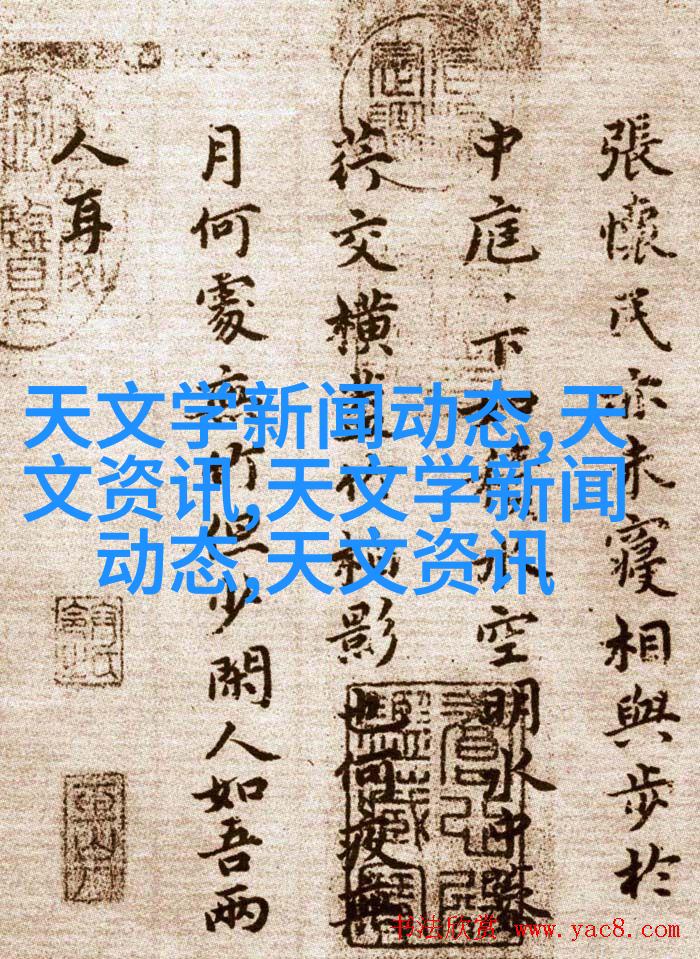 張懷民亦未寢相與步於
中庭、下如積水空明水中藻
荇交橫蓋竹柏影也何夜無
月何處無竹但少閑人如吾兩
人耳
天文学新闻动态,天
文资讯,天文学新闻
动态,天文资讯
书法欣赏 www.yac8.com